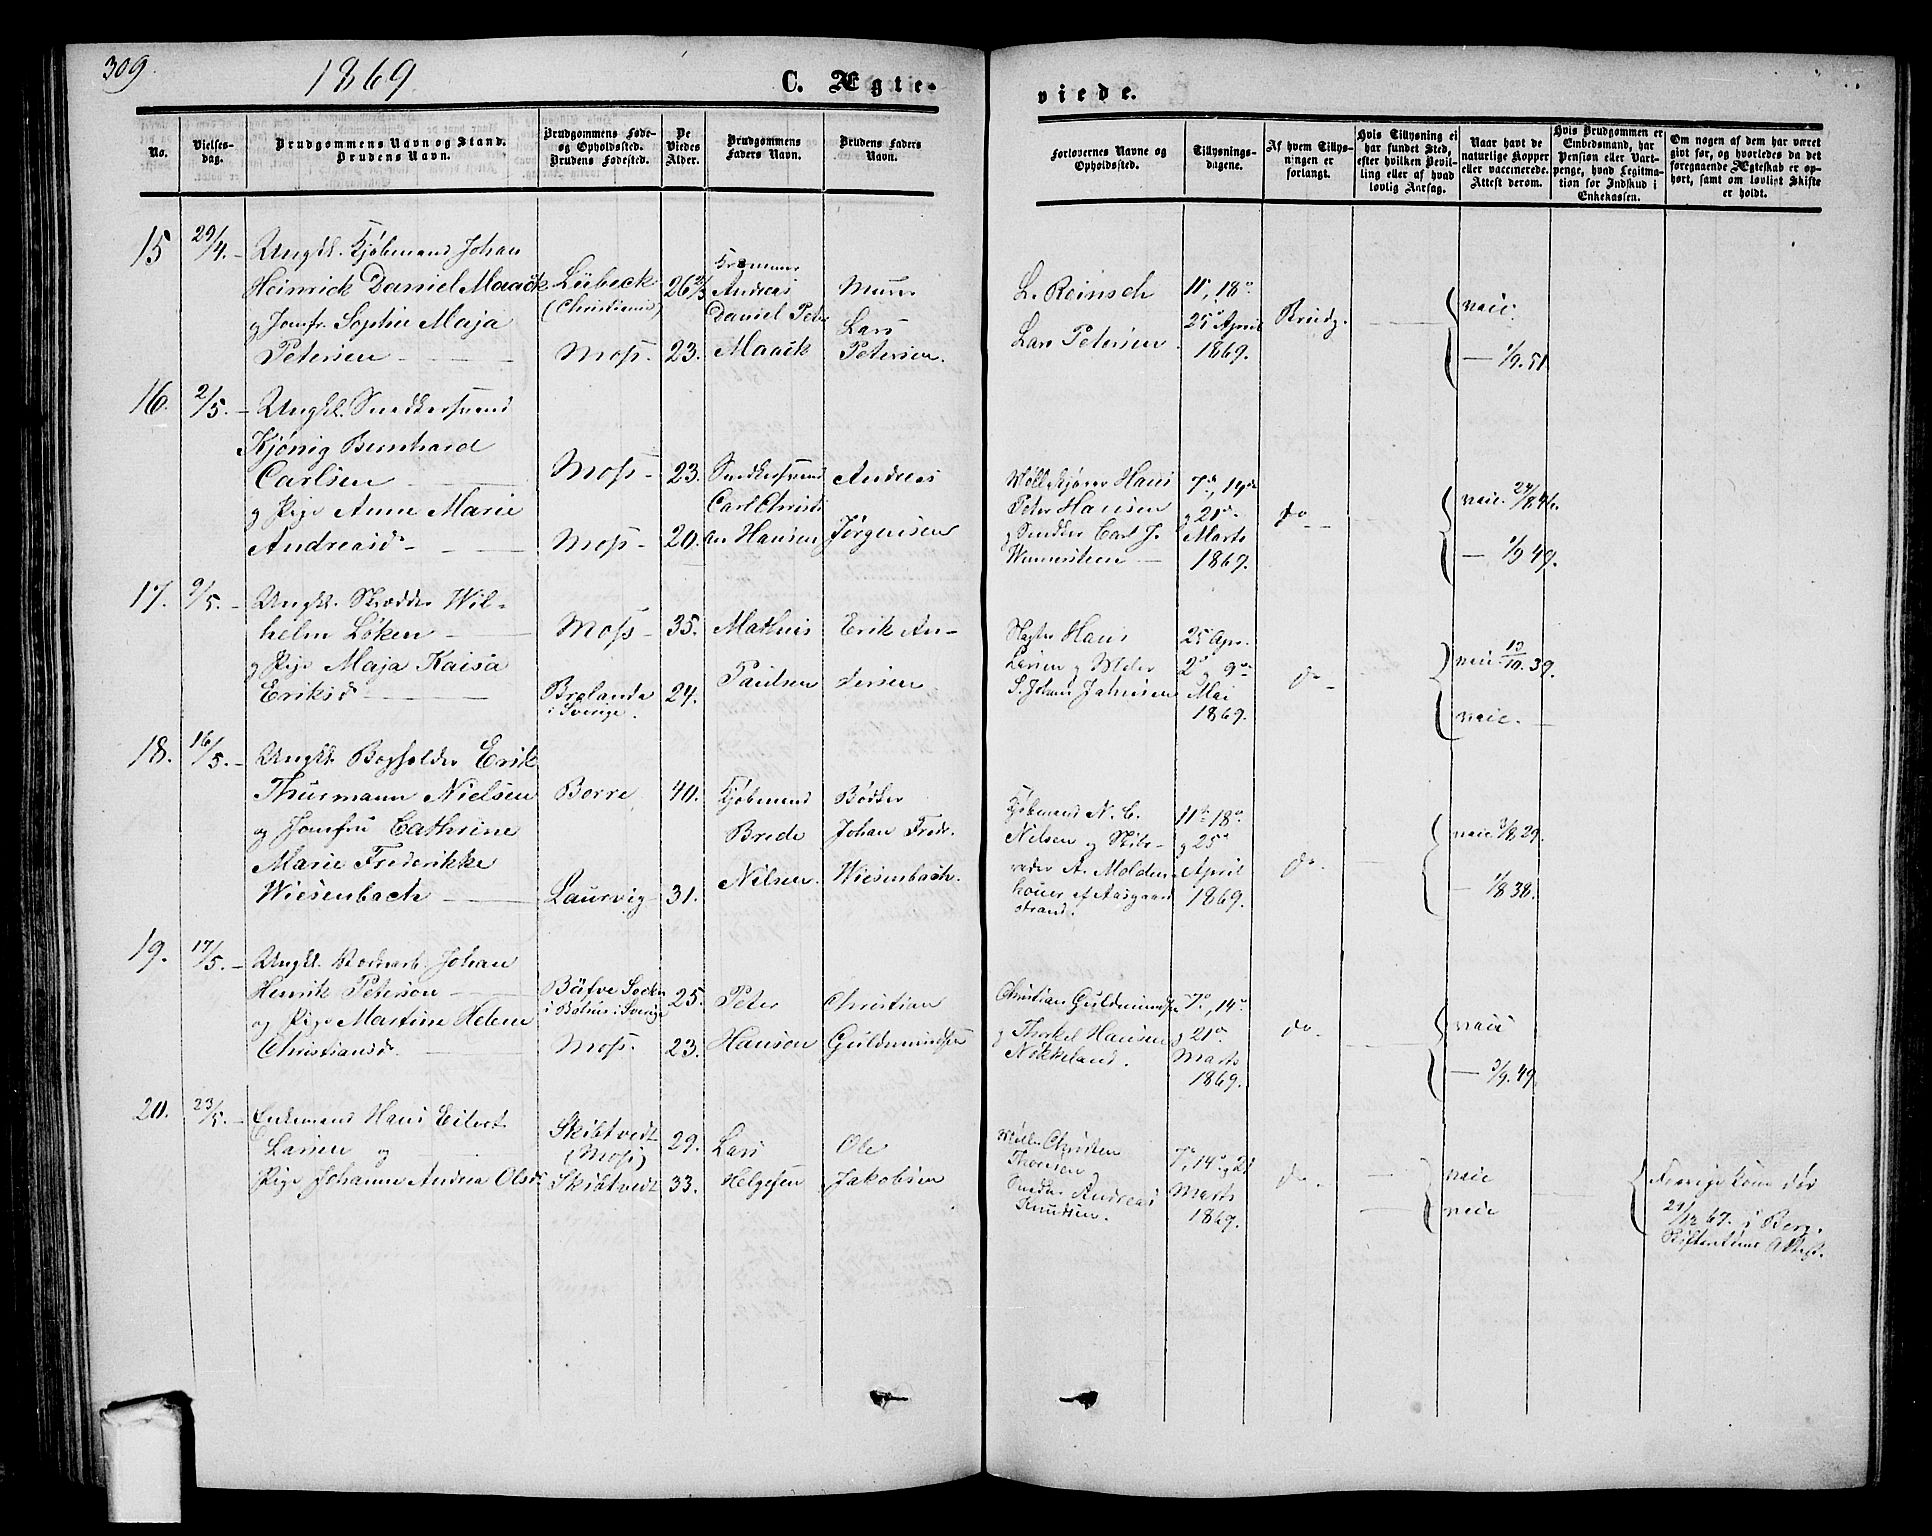 309.
1869
C. Ægte-
viede.
No.
Vielses-
dag.
Brudgommens Navn og Stand.
Brudens Navn.
Brudgommens Føde-
og Opholdssted.
Brudens Fødested.
De
Viedes
Alder.
Brudgommens
Faders Navn.
Brudens Faders
Navn.
Forlovernes Navne og
Opholdssted.
Tillysnings-
dagene.
Af hvem Tillys-
ningen er
forlangt.
Hvis Tillysning ei
har fundet Sted,
efter hvilken Bevil-
ling eller af hvad
lovlig Aarsag.
Naar havt de
naturlige Kopper
eller vaccinerede.
Attest derom.
Hvis Brudgommen er
Embedsmand, har
Pension eller Vart-
penge, hvad Legitima-
tion for Indskud i
Enkekassen.
Om nogen af dem har været
givt før, og hvorledes da det
foregaaende Ægteskab er op-
hørt, samt om lovligt Skifte
er holdt.
15 29/4. Ungkl. Kjøbmand Johan
Heinrich Daniel Maack
og Jomfr. Sophie Maja
Petersen
Lübeck
(Christiania)
Moss.
26 2/3
23.
Andreas
Daniel Peter
Maack
Murer
Lars
Petersen.
L. Reinsch
Lars Petersen.
11te, 18de
25de April
1869.
Brudg.
vacc.
— 1/9. 51
16. 2/5. Ungkl. Snedkersvend
Kjönig Bernhard
Carlsen
og Pige Anne Marie
Andreasd.
Moss
Moss
23.
20.
Snedkersvend
Carl Christi
an Hansen
Andreas
Jørgensen
Møllekjører Hans
Peter Hansen
og Snedker Carl J.
Wennersteen
7de, 14de
og 21de
Marts
1869.
do
vacc. 24/8. 46.
— 1/9 49.
17. 9/5. Ungkl. Skrædder Wil-
helm Løken
og Pige Maja Kaisa
Eriksd.
Moss
Brelanda
i Sverige.
35.
24.
Mathias
Paulsen
Erik An-
dersen
Slagter Hans
Larsen og
S. Johan Johnsen
25 Apr.
2de og 9de
Mai
1869.
do
vacc. 13/10. 39.
vacc.
18. 16/5. Ungkl. Bogholder Erik
Thurmann Nielsen
og Jomfru Cathrine
Marie Frederikke
Wiesenbach
Borre
Laurvig
40.
31.
Kjøbmand
Brede
Nielsen.
Bødker
Johan Fredr.
Wiesenbach.
Kjøbmand N. C.
Nielsen og Skibs-
reder A. Molden-
houer af Aasgaard
strand.
11te 18de
og 25de
April
1869.
do.
vacc. 3/8. 29.
— 1/8 38.
19. 17/5. Ungkl. Johan
Henrik Peterson
og Pige Martine Helene
Christiansd.
Bäfve Socken
i Bohus i Sverige
Moss.
25.
23.
Peter
Hanson
Christian
Guldmundsen
Christian Guldmundsen
og Thorkel Hansen
Nökkeland.
7de, 14de
og 21de
Marts
1869.
do
vacc
— 3/9. 49
20. 23/5. Enkemand Hans Eilert
Larsen og
Pige Johanne Andrea Olsd.
Skibtvedt
(Moss)
Skibtvedt
29.
33.
Lars
Helgesen
Ole
Jakobsen
Møller Christen
Thoresen og
Andreas
Knudsen.
7de, 14de og 21
Marts
1869.
do.
vacc
vacc
Forrige Kone død
29/12 67. i Berg.
Skifterettens Attest.